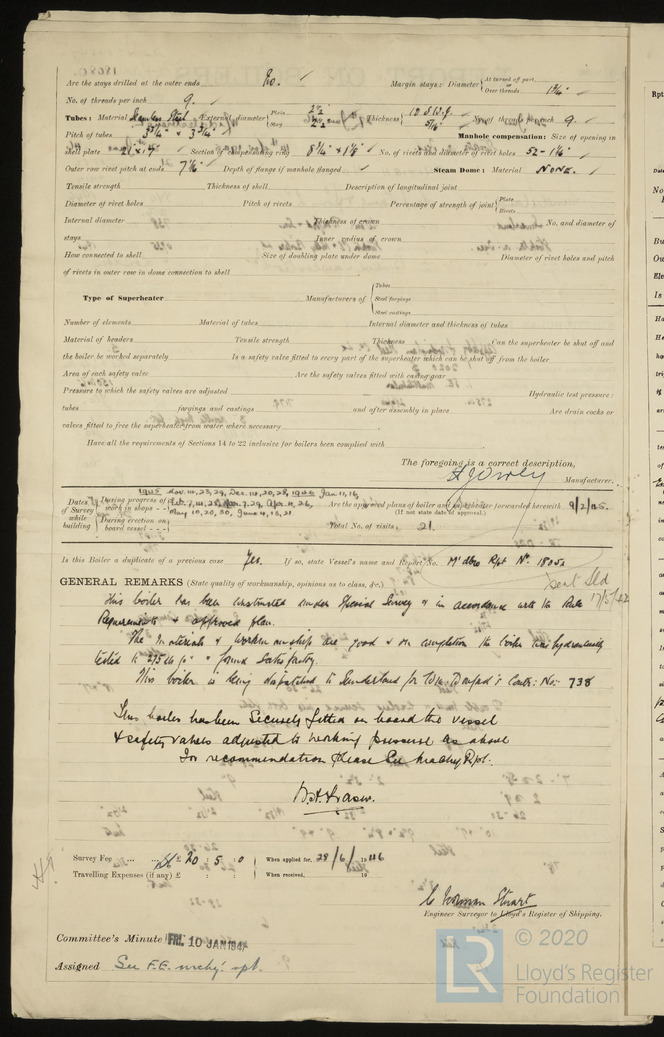 Are the stays drilled at the outer ends No. Margin stays: Diameter { At turned off part, or Over threads 1 3/4"
No. of threads per inch 9.
Tubes: Material Seamless Steel External diameter { Plain 2 1/2 Stay 2 1/2 Thickness { 10 S.W.G. 5/16" No. of threads per inch 9.
Pitch of tubes 3 3/4" x 3 3/4" Manhole compensation: Size of opening in
shell plate Section of compensating ring No. of rivets and diameter of rivet holes 52 -
Outer row rivet pitch at ends Depth of flange if manhole flanged Steam Dome: Material NONE.
Tensile strength Thickness of shell Description of longitudinal joint
Diameter of rivet holes Pitch of rivets Percentage of strength of joint { Plate Rivets
Internal diameter Thickness of crown No. and diameter of
stays Inner radius of crown
How connected to shell Size of doubling plate under dome Diameter of rivet holes and pitch
of rivets in outer row in dome connection to shell
Type of Superheater Manufacturers of { Tubes Steel forgings Steel castings
Number of elements Material of tubes Internal diameter and thickness of tubes
Material of headers Tensile strength Thickness Can the superheater be shut off and
the boiler be worked separately Is a safety valve fitted to every part of the superheater which can be shut off from the boiler
Area of each safety valve Are the safety valves fitted with easing gear
Pressure to which the safety valves are adjusted Hydraulic test pressure:
tubes forgings and castings and after assembly in place Are drain cocks or
valves fitted to free the superheater from water where necessary
Have all the requirements of Sections 14 to 22 inclusive for boilers been complied with
The foregoing is a correct description,
Manufacturer.
Dates of Survey while building { During progress of work in shops - - 1945 Nov. 14, 23, 29, Dec. 14, 20, 28, 1946 Jan 11, 16,
Are the approved plans of boiler and superheater forwarded herewith 9/2/45.
(If not state date of approval.)
During erection on board vessel - - - May 10, 20, 30, June 4, 13, 21
Total No. of visits 21.
Is this Boiler a duplicate of a previous case Yes. If so, state Vessel's name and Report No. M'dbro Rpt No. 18052
GENERAL REMARKS (State quality of workmanship, opinions as to class, &c.)
This boiler has been constructed under Special Survey & in accordance with the Rule
Requirements & approved plan.
The materials & workmanship are good & on completion the boiler was hydraulically
tested to 275 lb/□" & found satisfactory.
This boiler is being dispatched to Sunderland for Contr: No:- 738
This boiler has been securely fitted on board the vessel
& safety valves adjusted to working pressure as above
For recommendation please see machy Rpt.
Survey Fee ... ... £ 20 : 5 : 0 When applied for, 28/6/1946
Travelling Expenses (if any) £ : : When received, 19
C Norman Stuart
Engineer Surveyor to Lloyd's Register of Shipping.
Committee's Minute FRI. 10 JAN 1947
Assigned See F.E. mchy. rpt.
© 2020
LR
Lloyd's Register
Foundation